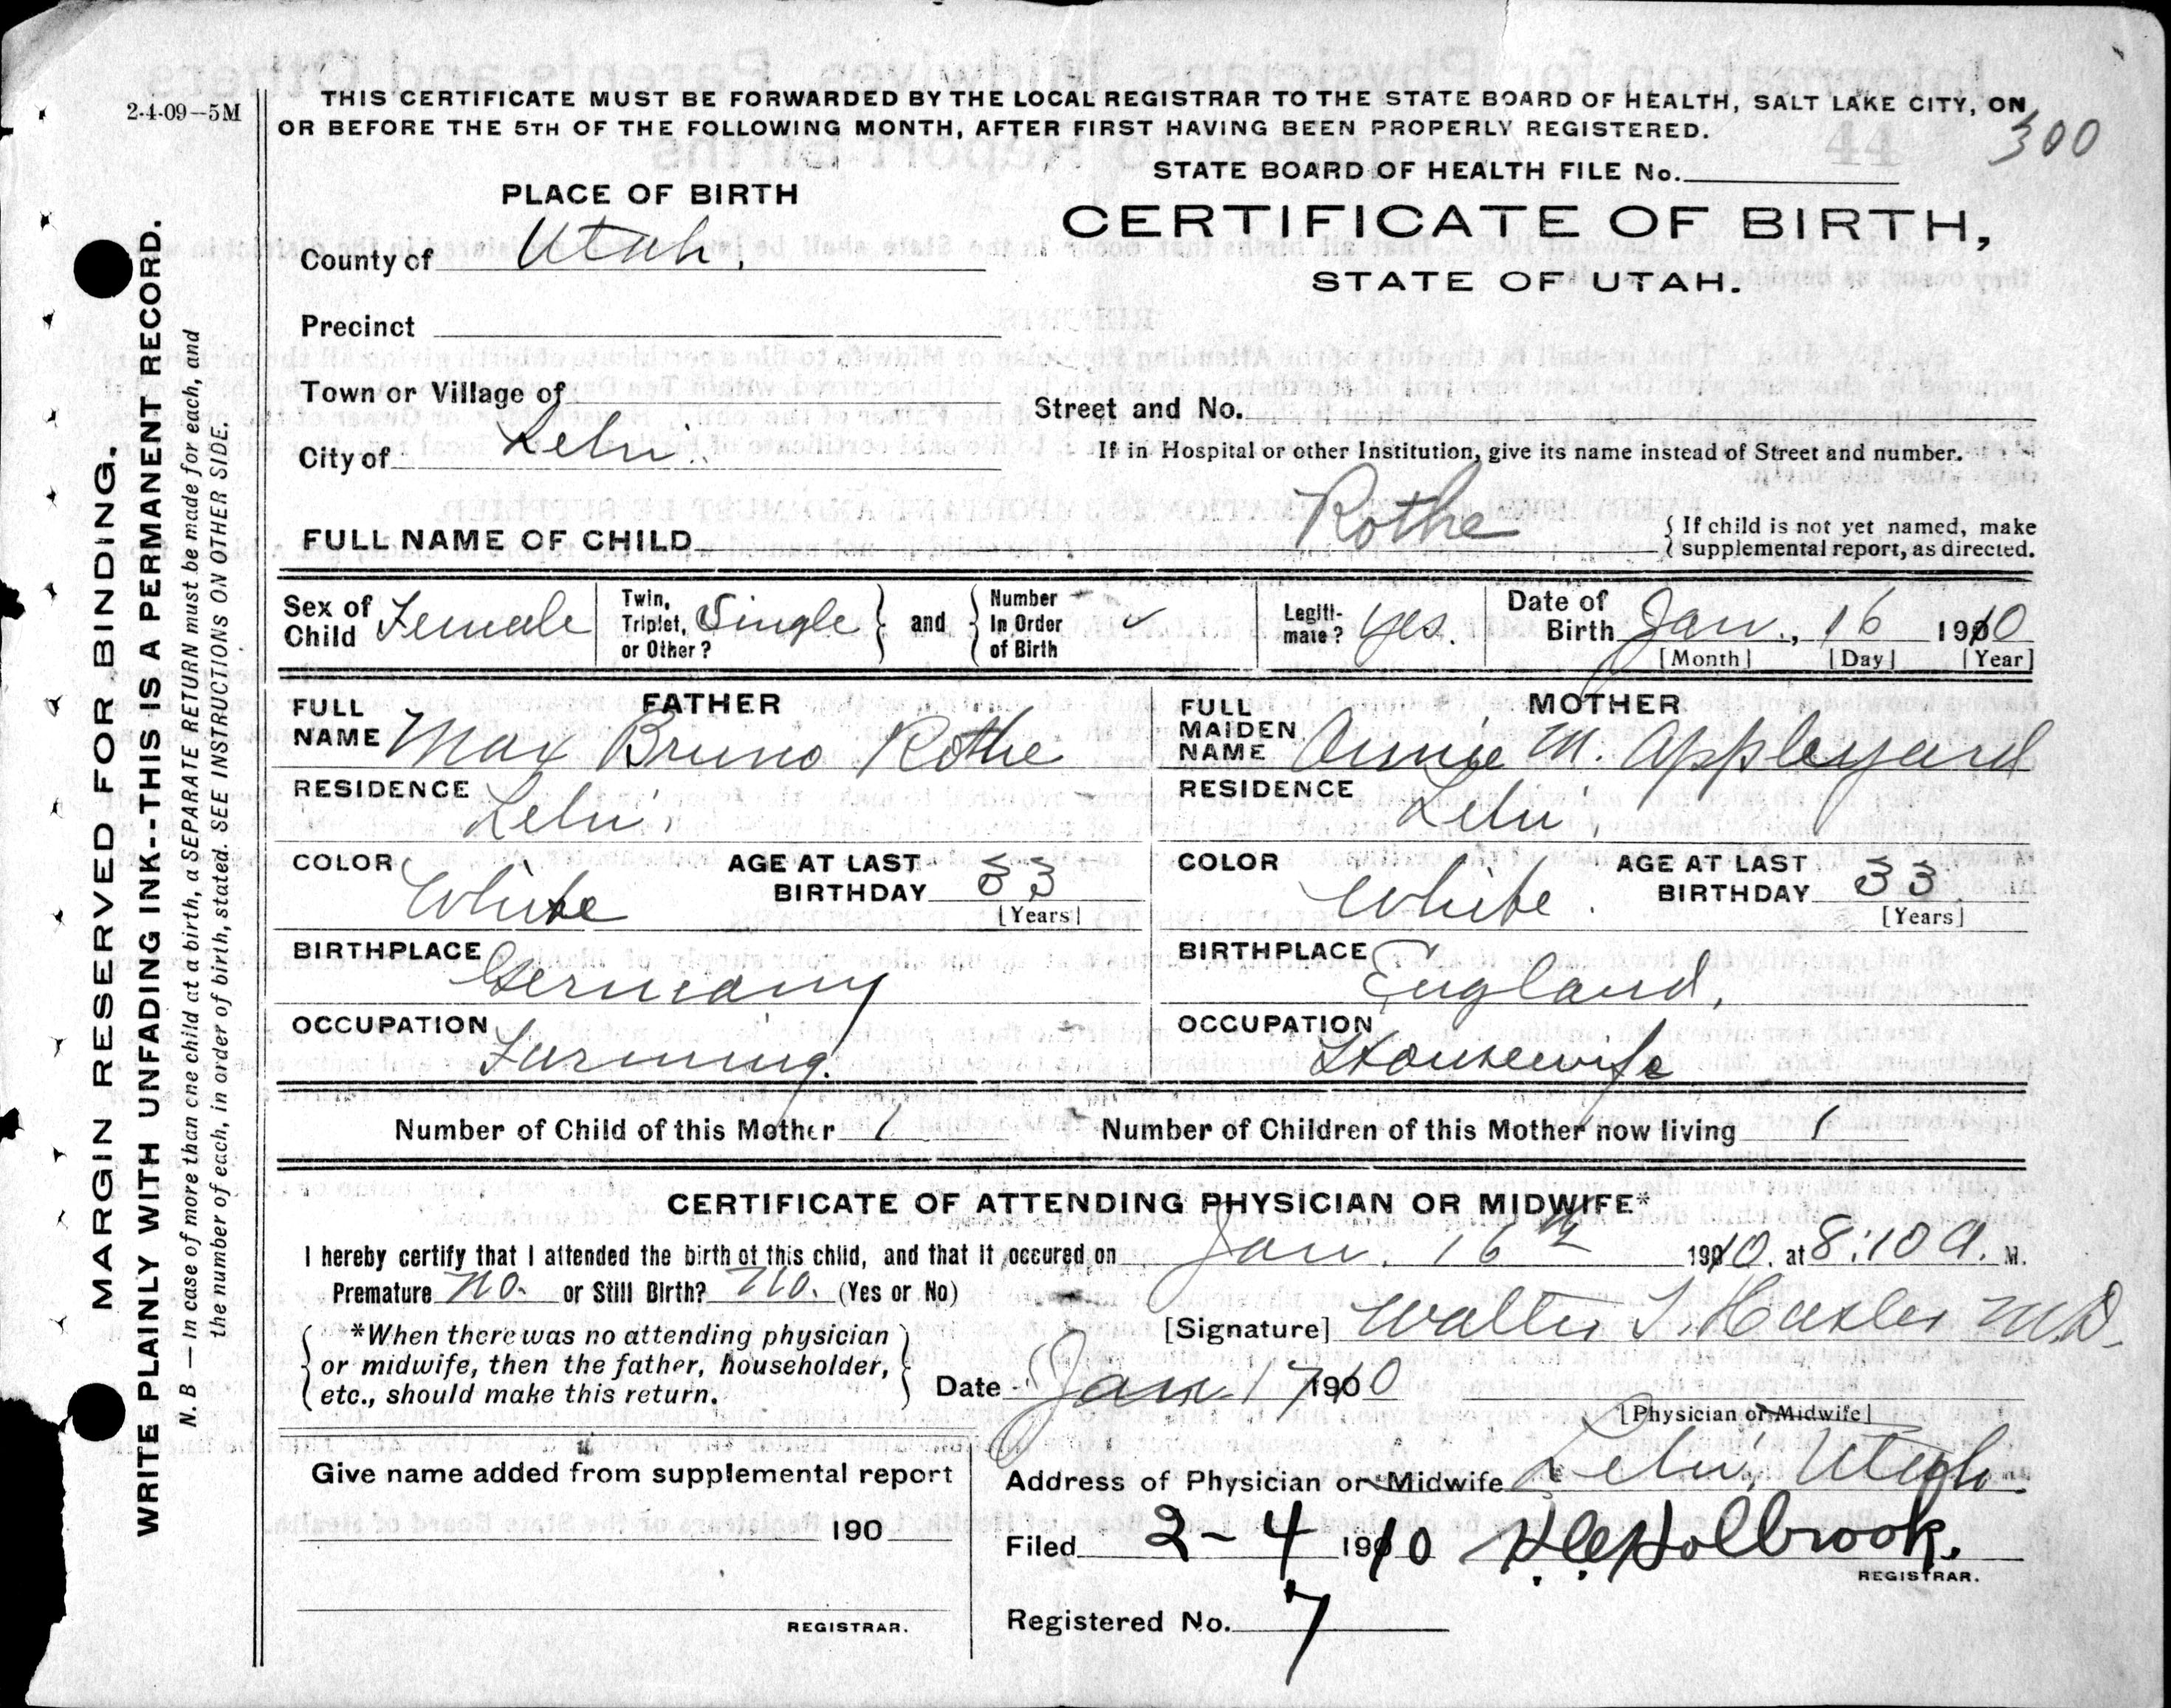 2-4-09--5M
THIS CERTIFICATE MUST BE FORWARDED BY THE LOCAL REGISTRAR TO THE STATE BOARD OF HEALTH, SALT LAKE CITY, ON
OR BEFORE THE 5TH OF THE FOLLOWING MONTH, AFTER FIRST HAVING BEEN PROPERLY REGISTERED.
300
STATE BOARD OF HEALTH FILE No.
44
PLACE OF BIRTH
CERTIFICATE OF BIRTH,
STATE OF UTAH.
County of Utah.
Precinct
Town or Village of
Street and No.
City of Lehi.
If in Hospital or other Institution, give its name instead of Street and number.
FULL NAME OF CHILD Rothe { If child is not yet named, make
supplemental report, as directed.
Sex of Child Female
Twin, Triplet, or Other? Single } and { Number In Order of Birth
Legiti- mate? Yes.
Date of Birth Jan., 16 1910
[Month] [Day] [Year]
FATHER
FULL NAME Max Bruno Rothe
MOTHER
FULL MAIDEN NAME Annie M. Appleyard
RESIDENCE Lehi.
RESIDENCE Lehi.
COLOR White AGE AT LAST BIRTHDAY 33 [Years]
COLOR White. AGE AT LAST BIRTHDAY 33 [Years]
BIRTHPLACE Germany
BIRTHPLACE England,
OCCUPATION Farming.
OCCUPATION Housewife
Number of Child of this Mother 1
Number of Children of this Mother now living 1
CERTIFICATE OF ATTENDING PHYSICIAN OR MIDWIFE*
I hereby certify that I attended the birth of this child, and that it occured on Jan. 16th 1910. at 8:10 A. M.
Premature No. or Still Birth? No. (Yes or No)
*When there was no attending physician
or midwife, then the father, householder,
etc., should make this return.
[Signature] Walter T. Hasler M.D.
Date Jan 17 1910
[Physician or Midwife]
Address of Physician or Midwife Lehi, Utah
Give name added from supplemental report
190
REGISTRAR.
Filed 2-4 1910 Holbrook.
REGISTRAR.
Registered No. 7
MARGIN RESERVED FOR BINDING.
WRITE PLAINLY WITH UNFADING INK--THIS IS A PERMANENT RECORD.
N. B — In case of more than one child at a birth, a SEPARATE RETURN must be made for each, and
the number of each, in order of birth, stated. SEE INSTRUCTIONS ON OTHER SIDE.